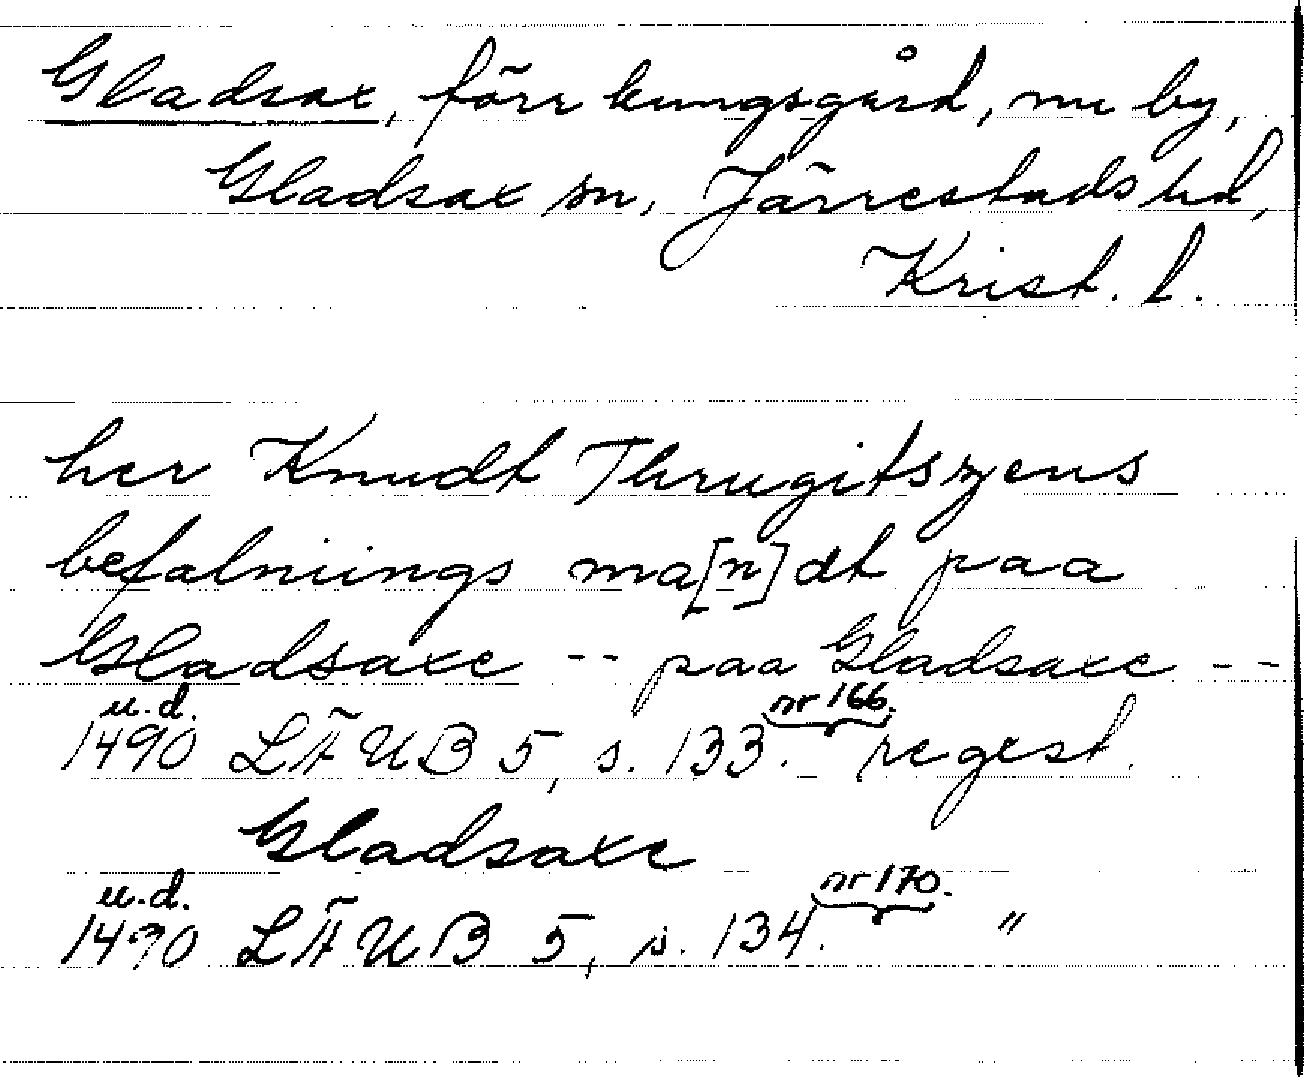 Gladsax, förr kungsgård, nu by,
Gladsax sn, Järrestads hd,
Krist. l.
her Knudt Thrugitszens
befalniings ma[n]dt paa
Gladsaxe -- paa Gladsaxe --
u.d. nr 166.
1490 LÄUB 5, s. 133. regest.
Gladsaxe
u.d. nr 170.
1490 LÄUB 5, s. 134. "